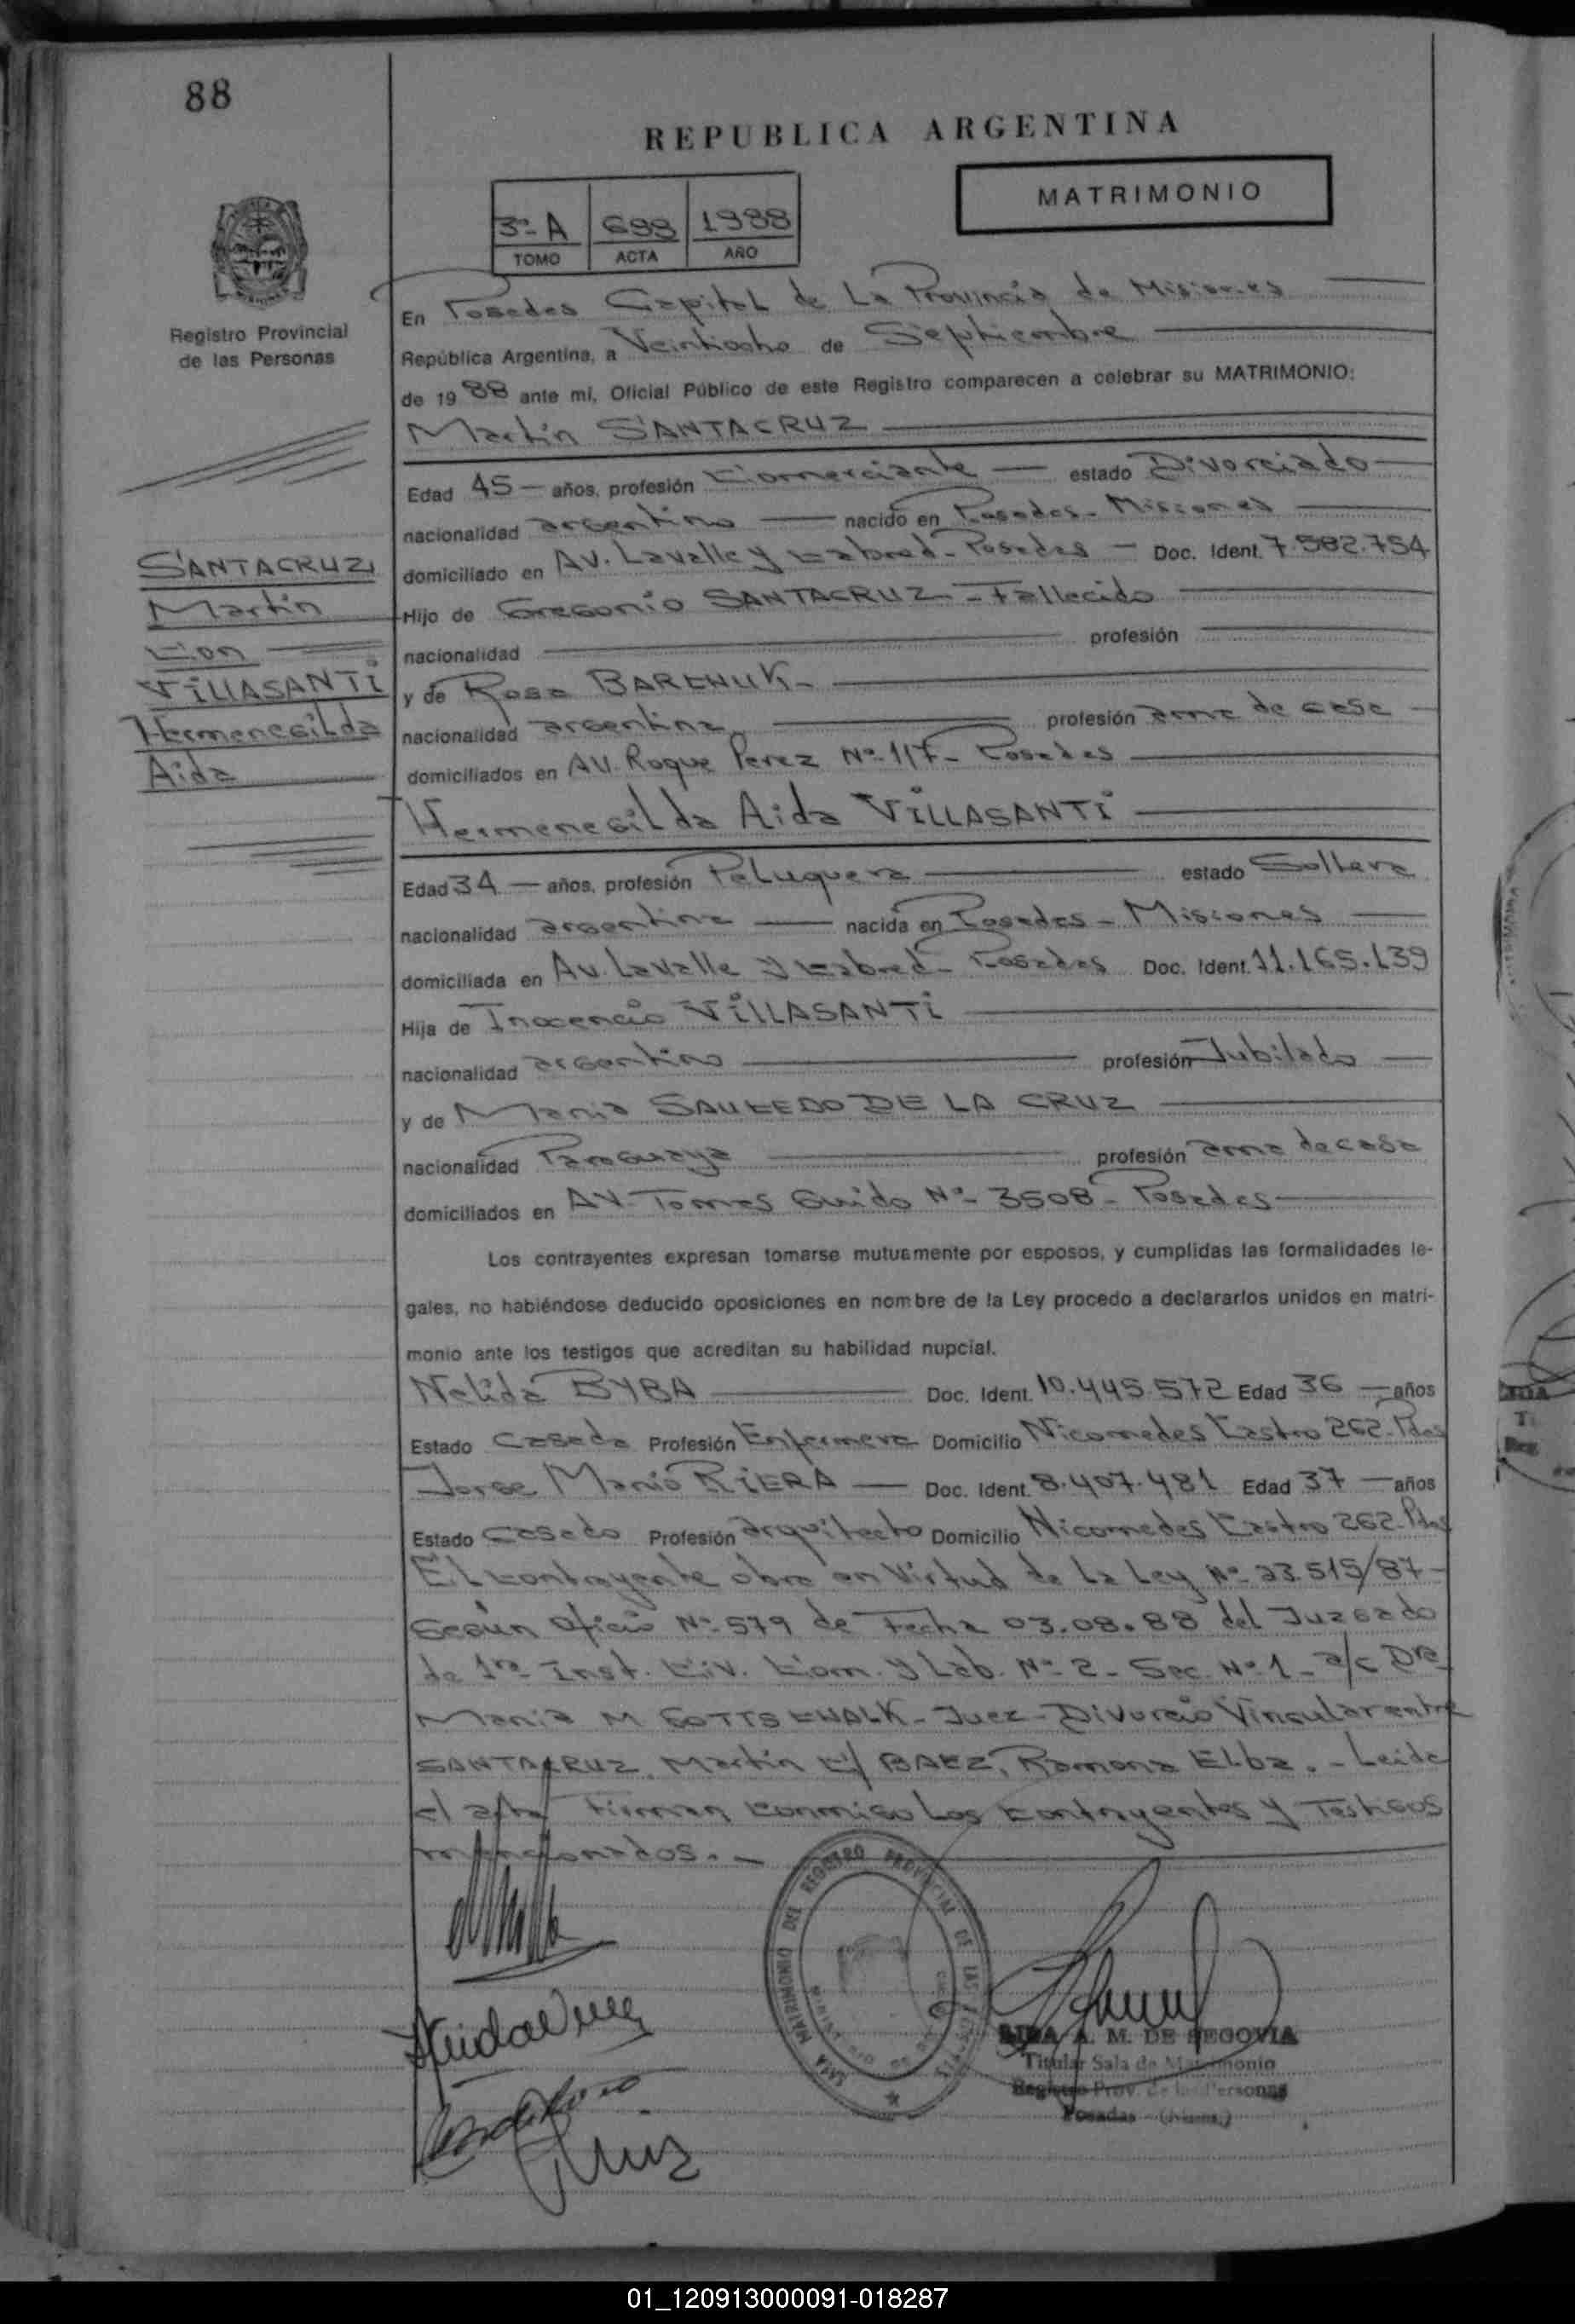 88
REPUBLICA ARGENTINA
MATRIMONIO
3º A 699 1988
TOMO ACTA AÑO
Registro Provincial
de las Personas
En Posadas Capital de La Provincia de Misiones
República Argentina, a Veintiocho de Septiembre
de 1988 ante mi, Oficial Público de este Registro comparecen a celebrar su MATRIMONIO:
Martin SANTACRUZ
Edad 45 años, profesión Comerciante estado Divorciado
nacionalidad argentino nacido en Posadas - Misiones
SANTACRUZ,
Martin
Con
VILLASANTI
Hermenegilda
Aida
domiciliado en AV. Lavalle y Cabred - Posadas - Doc. Ident. 7.582.754
Hijo de Gregorio SANTACRUZ - Fallecido
nacionalidad profesión
y de Rosa BARCHUK -
nacionalidad argentina profesión ama de casa
domiciliados en AV. Roque Perez Nº 117 - Posadas
Hermenegilda Aida VILLASANTI
Edad 34 años, profesión Peluquera estado Soltera
nacionalidad argentina nacida en Posadas - Misiones
domiciliada en Av. Lavalle y Cabred - Posadas Doc. Ident. 11.165.139
Hija de Inocencio VILLASANTI
nacionalidad argentino profesión Jubilado
y de Maria SAUCEDO DE LA CRUZ
nacionalidad Paraguaya profesión ama de casa
domiciliados en AV. Tomas Guido Nº 3508 - Posadas
Los contrayentes expresan tomarse mutuamente por esposos, y cumplidas las formalidades le-
gales, no habiéndose deducido oposiciones en nombre de la Ley procedo a declararlos unidos en matri-
monio ante los testigos que acreditan su habilidad nupcial.
Nelida BYBA Doc. Ident. 10.445.572 Edad 36 años
Estado Casada Profesión Enfermera Domicilio Nicomedes Castro 262-Pdas
Jorge Mario RIERA Doc. Ident. 8.407.481 Edad 37 años
Estado Casado Profesión arquitecto Domicilio Nicomedes Castro 262-Pdas
El contrayente obra en Virtud de La Ley Nº 23.515/87 -
Según Oficio Nº 579 de Fecha 03.08.88 del Juzgado
de 1ra Inst. Civ. Com. y Lab. Nº 2 - Sec. Nº 1 - a/c Dra
Maria M GOTTSCHALK - Juez - Divorcio Vincular entre
SANTACRUZ, Martin C/ BAEZ, Ramona Elba. - Leida
el acta Firman conmigo Los contrayentes y Testigos
mencionados. -
SALA MATRIMONIO DEL REGISTRO PROVINCIAL DE LAS PERSONAS
LIDA A. M. DE SEGOVIA
Titular Sala de Matrimonio
Registro Prov. de las Personas
Posadas - (Mnes.)
01_120913000091-018287